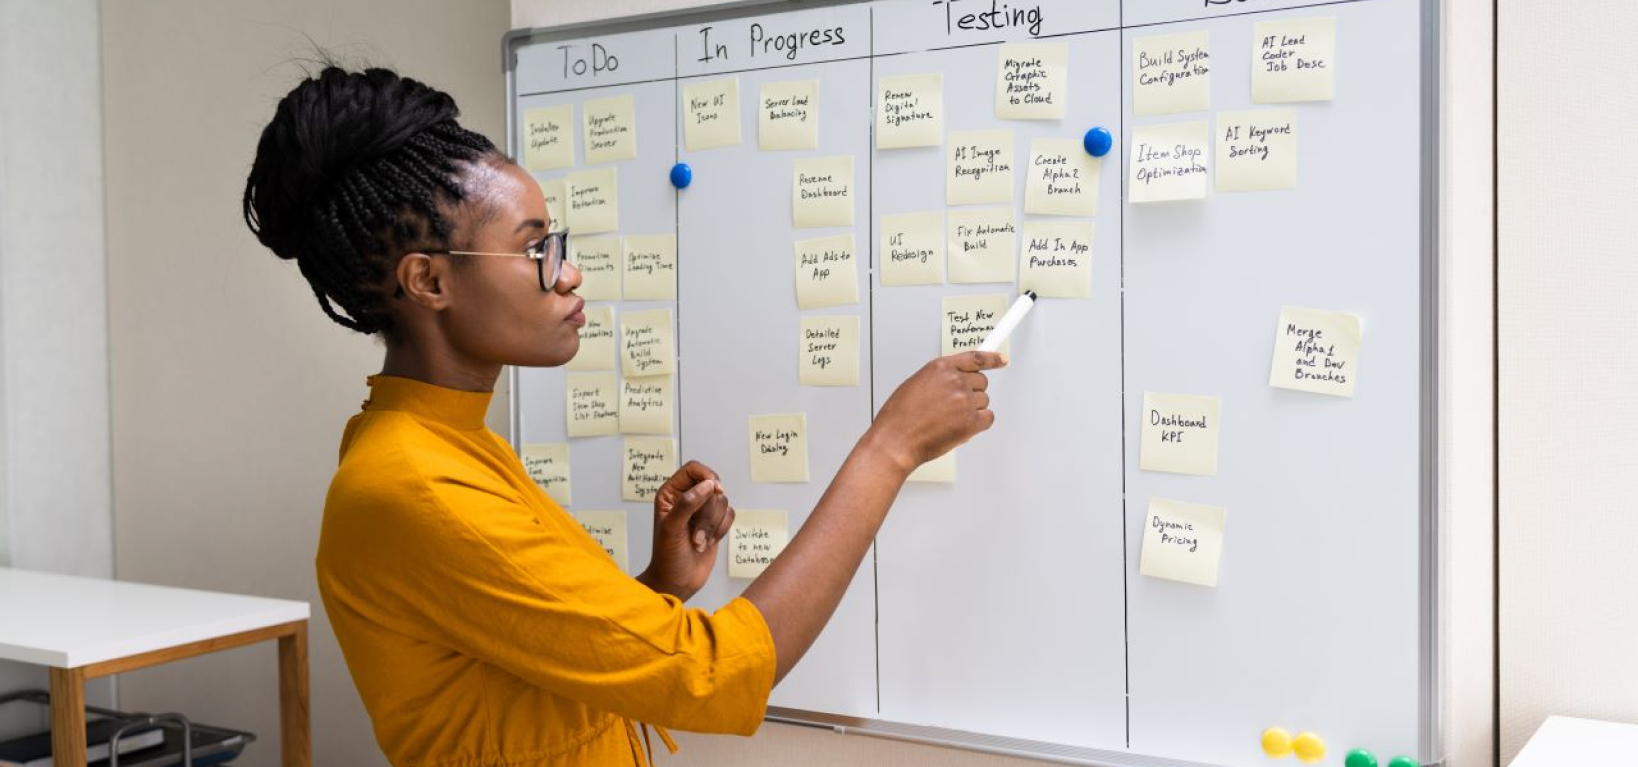 To Do
In Progress
Testing
Installer
Update
Upgrade
Production
Server
Improve
Retention
Promotion
Discounts
Optimise
Loading Time
New
Upgrade
Automatic
Build
System
Export
Item Shop
List Feature
Predictive
Analytics
Improve
Integrate
New
AntiHacking
System
New UI
Icons
Server Load
Balancing
Revenue
Dashboard
Add Ads to
App
Detailed
Server
Logs
New Login
Dialog
Switche
to new
Database
Renew
Digital
Signature
Migrate
Graphic
Assets
to Cloud
AI Image
Recognition
Create
Alpha 2
Branch
UI
Redesign
Fix Automatic
Build
Add In App
Purchases
Test New
Build System
Configuration
AI Lead
Coder
Job Desc
Item Shop
Optimization
AI Keyword
Sorting
Merge
Alpha 1
and Dev
Branches
Dashboard
KPI
Dynamic
Pricing